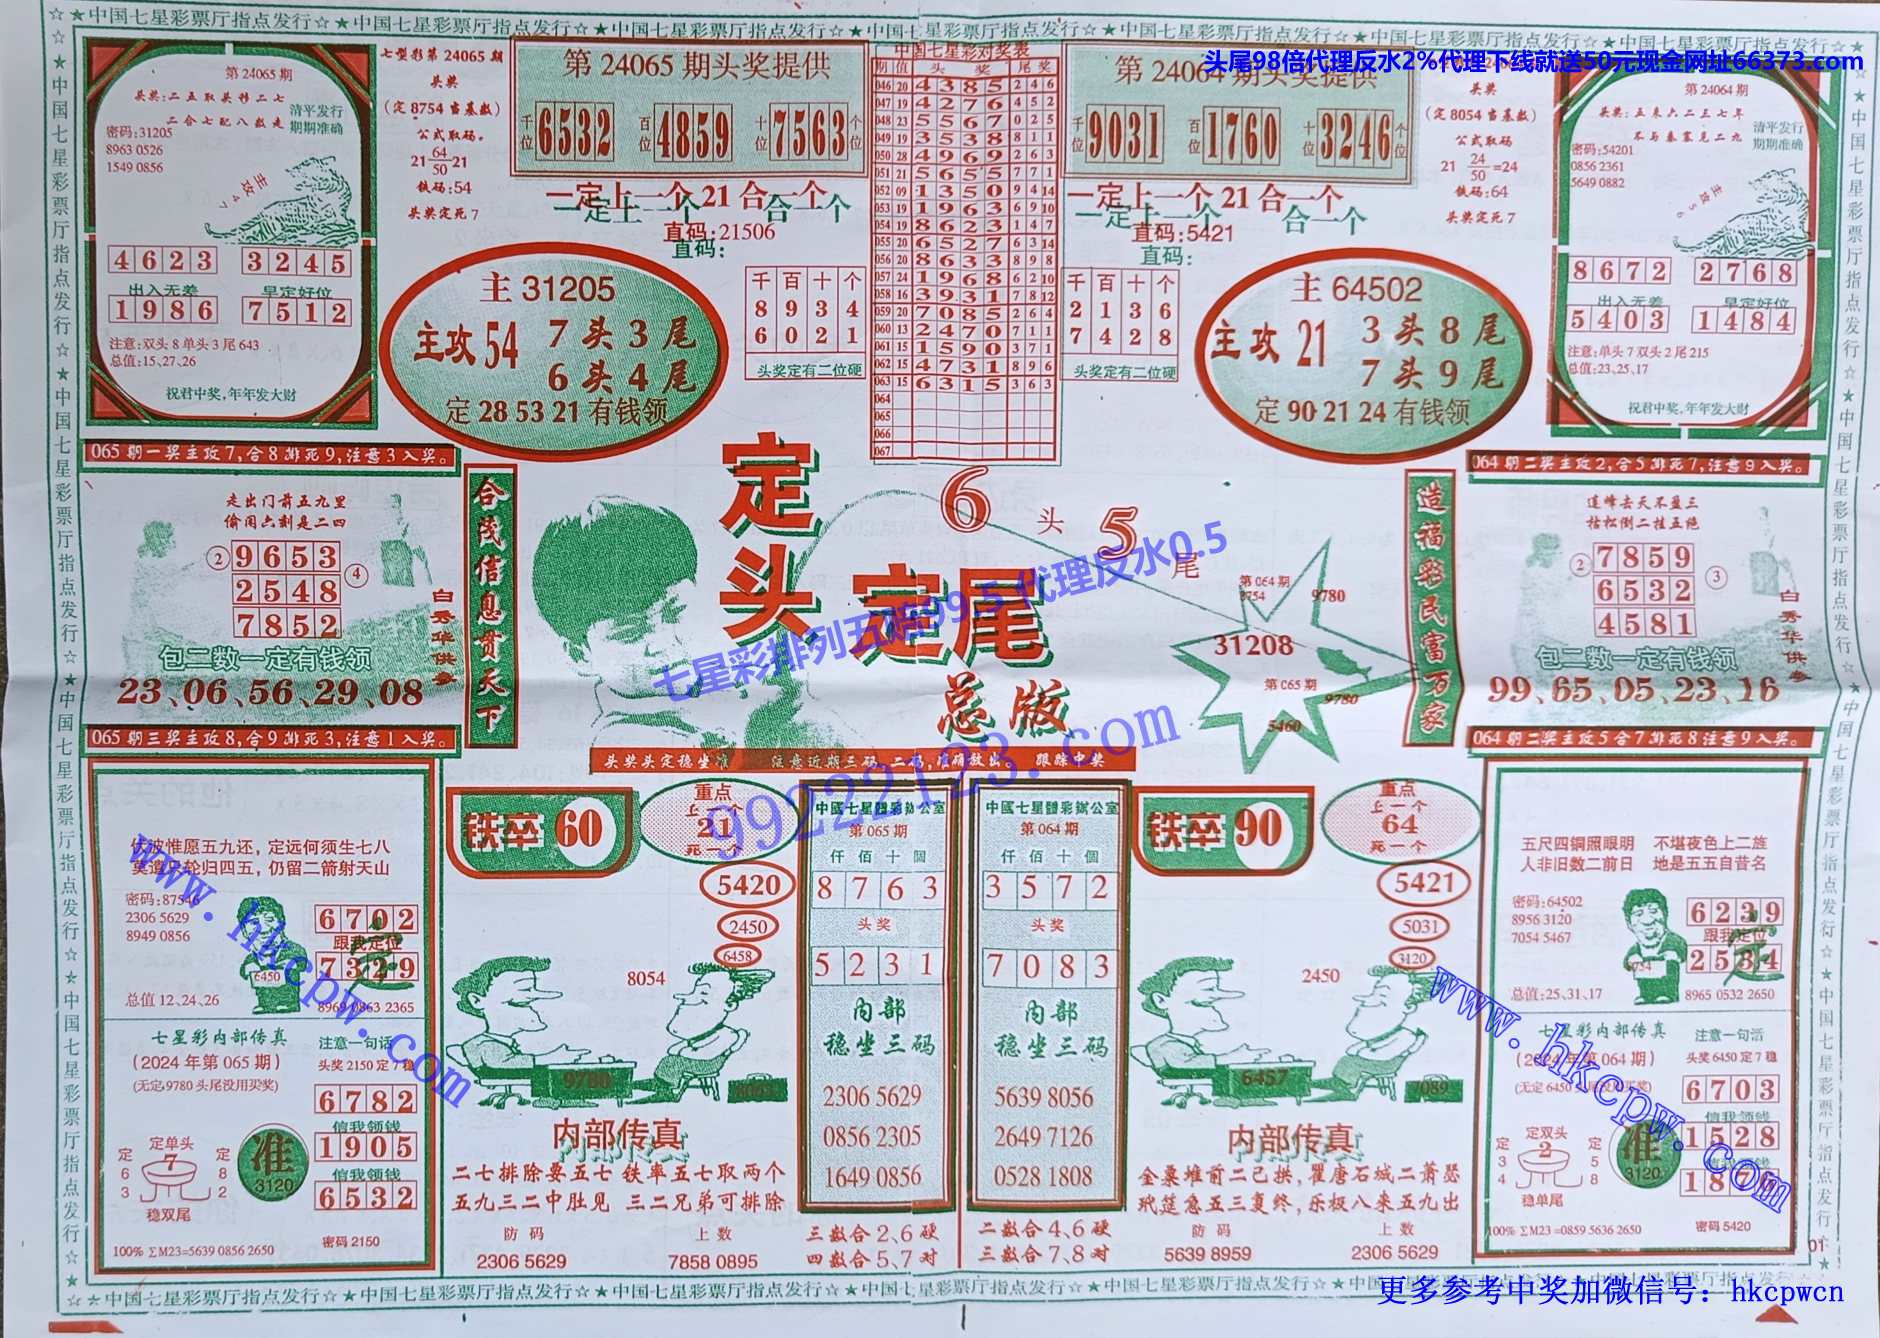 ☆★中国七星彩票厅指点发行☆★中国七星彩票厅指点发行☆★中国七星彩票厅指点发行☆★中国七星彩票厅指点发行☆★
头尾98倍代理反水2%代理下线就送50元现金网址66373.com
第 24065 期
头奖:二五取英移二七
二合七配八数走
清平发行
期期准确
密码:31205
8963 0526
1549 0856
主攻47
4 6 2 3
3 2 4 5
出入无差
早定好位
1 9 8 6
7 5 1 2
注意:双头 8 单头 3 尾 643
总值:15、27、26
祝君中奖,年年发大财
七型彩第 24065 期
头奖
(定 8754 当基数)
公式取码。
21 64/50 21
铁码:54
头奖定死 7
第 24065 期头奖提供
千位 6532
百位 4859
十位 7563 个位
一定上一个 21 合一个
一定上一个 合一个
直码:21506
直码:
主 31205
主攻 54
7 头 3 尾
6 头 4 尾
定 28 53 21 有钱领
千 百 十 个
8 9 3 4
6 0 2 1
头奖定有二位硬
中国七星彩对奖表
期 值 头 奖 尾 奖
046 20 4 3 8 5 2 4 6
047 19 4 2 7 6 4 5 2
048 23 5 5 6 7 0 2 5
049 19 3 5 3 8 8 1 1
050 28 4 9 6 9 2 6 3
051 21 5 6 5 5 7 7 1
052 09 1 3 5 0 9 4 14
053 19 1 9 6 3 6 9 10
054 19 8 6 2 3 1 4 7
055 20 6 5 2 7 6 3 14
056 20 8 6 3 3 8 9 8
057 24 1 9 6 8 6 2 10
058 16 3 9 3 1 7 8 12
059 20 7 0 8 5 2 6 4
060 13 2 4 7 0 7 1 1
061 15 1 5 9 0 3 7 1
062 15 4 7 3 1 8 9 6
063 15 6 3 1 5 3 6 3
064
065
066
067
第 24064 期头奖提供
千位 9031
百位 1760
十位 3246 个位
一定上一个 21 合一个
一定上一个 合一个
直码:5421
直码:
千 百 十 个
2 1 3 6
7 4 2 8
头奖定有二位硬
主 64502
主攻 21
3 头 8 尾
7 头 9 尾
定 90 21 24 有钱领
头奖
(定 8054 当基数)
公式取码
21 24/50 =24
铁码:64
头奖定死 7
第 24064 期
头奖:五来六二三七年
不与秦塞见二九
清平发行
期期准确
密码:54201
0856 2361
5649 0882
主攻56
8 6 7 2
2 7 6 8
出入无差
早定好位
5 4 0 3
1 4 8 4
注意:单头 7 双头 2 尾 215
总值:23、25、17
祝君中奖,年年发大财
065 期一奖主攻 7,合 8 排死 9,注意 3 入奖。
走出门前五九里
偷闲六割是二四
② 9 6 5 3
2 5 4 8 ④
7 8 5 2
白秀华供参
包二数一定有钱领
23、06、56、29、08
065 期三奖主攻 8,合 9 排死 3,注意 1 入奖。
合茂信息贯天下
定头
定尾
6 头 5 尾
总版
七星彩排列五赔99.5 代理反水0.5
99222123.com
第 064 期
8754
9780
31208
第 065 期
9780
5460
造福彩民富万家
头奖头定稳坐准 注意近期三码,二码,准确放出。 跟踪中奖
064 期二奖主攻 2,合 5 排死 7,注意 9 入奖。
道峰去天不盈三
枯松倒二挂五绝
② 7 8 5 9
6 5 3 2 ③
4 5 8 1
白秀华供参
包二数一定有钱领
99、65、05、23、16
064 期二奖主攻 5 合 7 排死 8 注意 9 入奖。
伏波惟愿五九还,定远何须生七八
莫遣只轮归四五,仍留二箭射天山
密码:87546
2306 5629
8949 0856
总值 12、24、26
6450
6 7 0 2
跟我定位
7 3 2 9
8969 0863 2365
www.hkcpw.com
七星彩内部传真
(2024 年第 065 期)
(无定 9780 头尾没用买奖)
注意一句话
头奖 2150 定 7 稳
6 7 8 2
信我领钱
1 9 0 5
信我领钱
6 5 3 2
定 6 3
定单头
7
稳双尾
定 8 2
准
3120
100% ΣM23=5639 0856 2650
密码 2150
铁卒 60
重点
上一个
21
死一个
5420
2450
6458
8054
9780
内部传真
二七排除要五七 铁率五七取两个
五九三二中肚见 三二兄弟可排除
防 码
上 数
2306 5629
7858 0895
中國七星體彩辦公室
第 065 期
仟 佰 十 個
8 7 6 3
头 奖
5 2 3 1
内部
稳坐三码
2306 5629
0856 2305
1649 0856
三数合 2、6 硬
四数合 5、7 对
中國七星體彩辦公室
第 064 期
仟 佰 十 個
3 5 7 2
头 奖
7 0 8 3
内部
稳坐三码
5639 8056
2649 7126
0528 1808
二数合 4、6 硬
三数合 7、8 对
铁卒 90
重点
上一个
64
死一个
5421
5031
3120
2450
6457
7089
内部传真
金粟堆前二已拱,瞿唐石城二萧瑟
玳筵急五三复终,乐极八来五九出
防 码
上 数
5639 8959
2306 5629
五尺四铜照眼明 不堪夜色上二旌
人非旧数二前日 地是五五自昔名
密码:64502
8956 3120
7054 5467
总值:25、31、17
8754
6 2 3 9
跟我定位
2 5 3 4
8965 0532 2650
www.hkcpw.com
七星彩内部传真
(2024 年第 064 期)
(无定 6450 头尾没用买奖)
注意一句话
头奖 6450 定 7 稳
6 7 0 3
信我领钱
1 5 2 8
信我领钱
1 8 7 6
定 3 4
定双头
2
稳单尾
定 5 8
准
3120
100% ΣM23 =0859 5636 2650
密码 5420
01
☆★中国七星彩票厅指点发行☆★中国七星彩票厅指点发行☆★中国七星彩票厅指点发行☆★中国七星彩票厅指点发行☆★
更多参考中奖加微信号: hkcpwcn